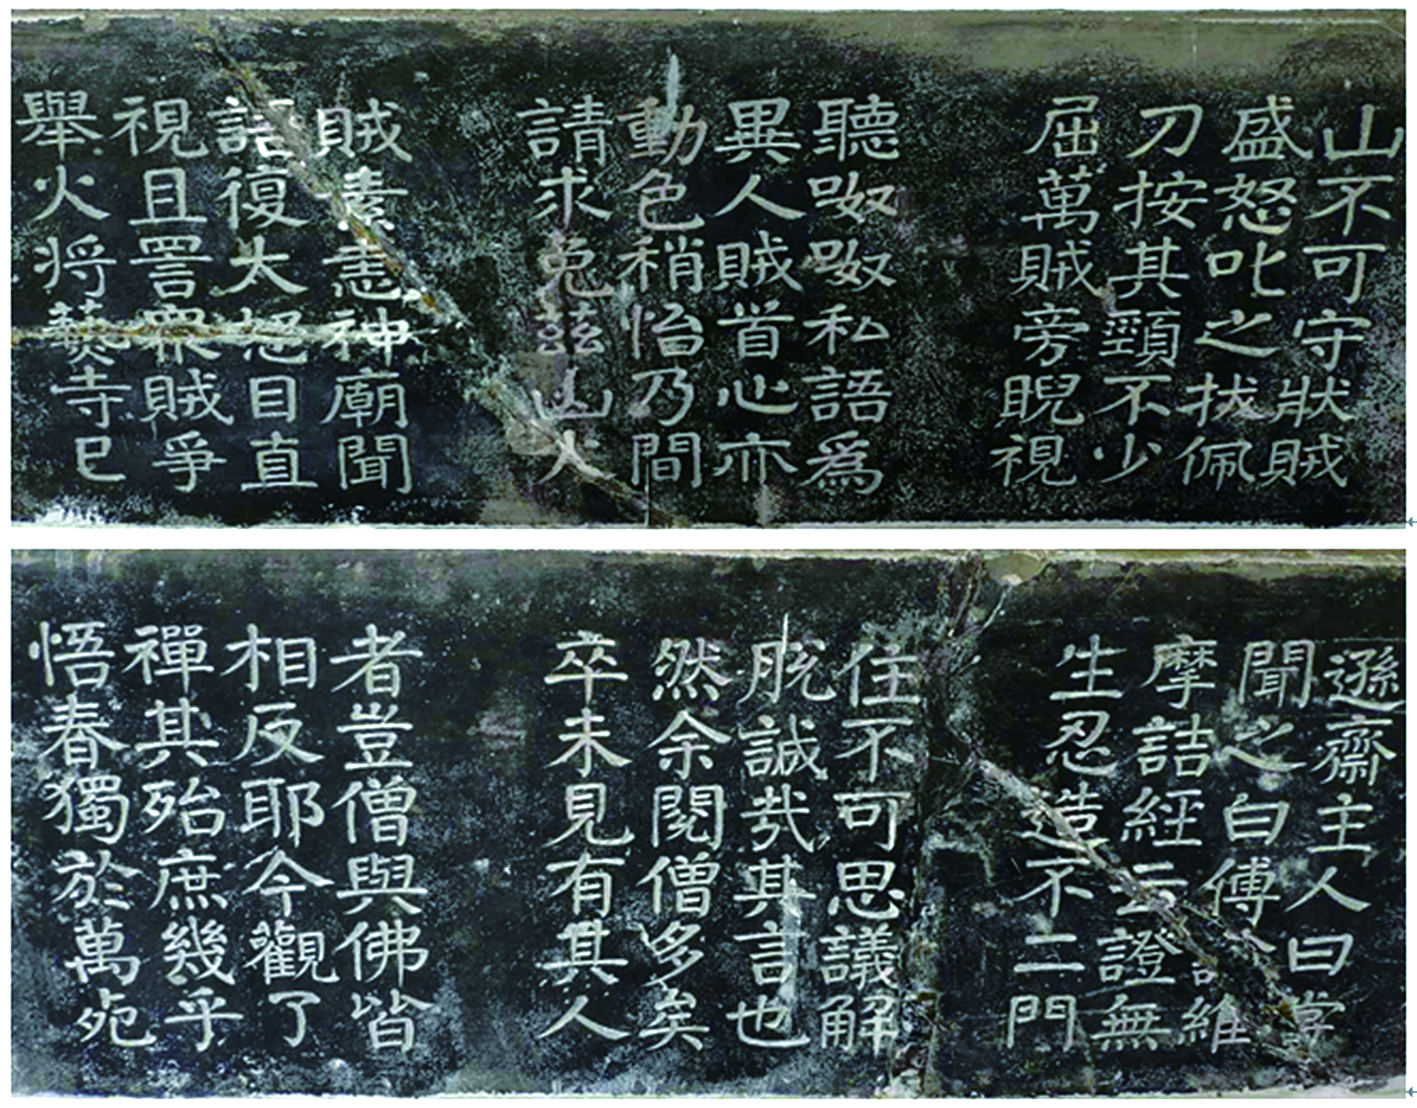 山不可守狀賊
盛怒叱之拔佩
刀按其頸不少
屈萬賊旁睨視
聽呶呶私語爲
異人賊首心亦
動色稍怡乃間
請求免茲山火
賊素恚神廟聞
語復大怒目直
視且詈眾賊爭
舉火将爇寺已
遜齋主人曰嘗
聞之白傅維
摩詰經云證無
生忍造不二門
住不可思議解
脫誠哉其言也
然余閱僧多矣
卒未見有其人
者豈僧與佛皆
相反耶今觀了
禪其殆庶幾乎
悟春獨於萬死